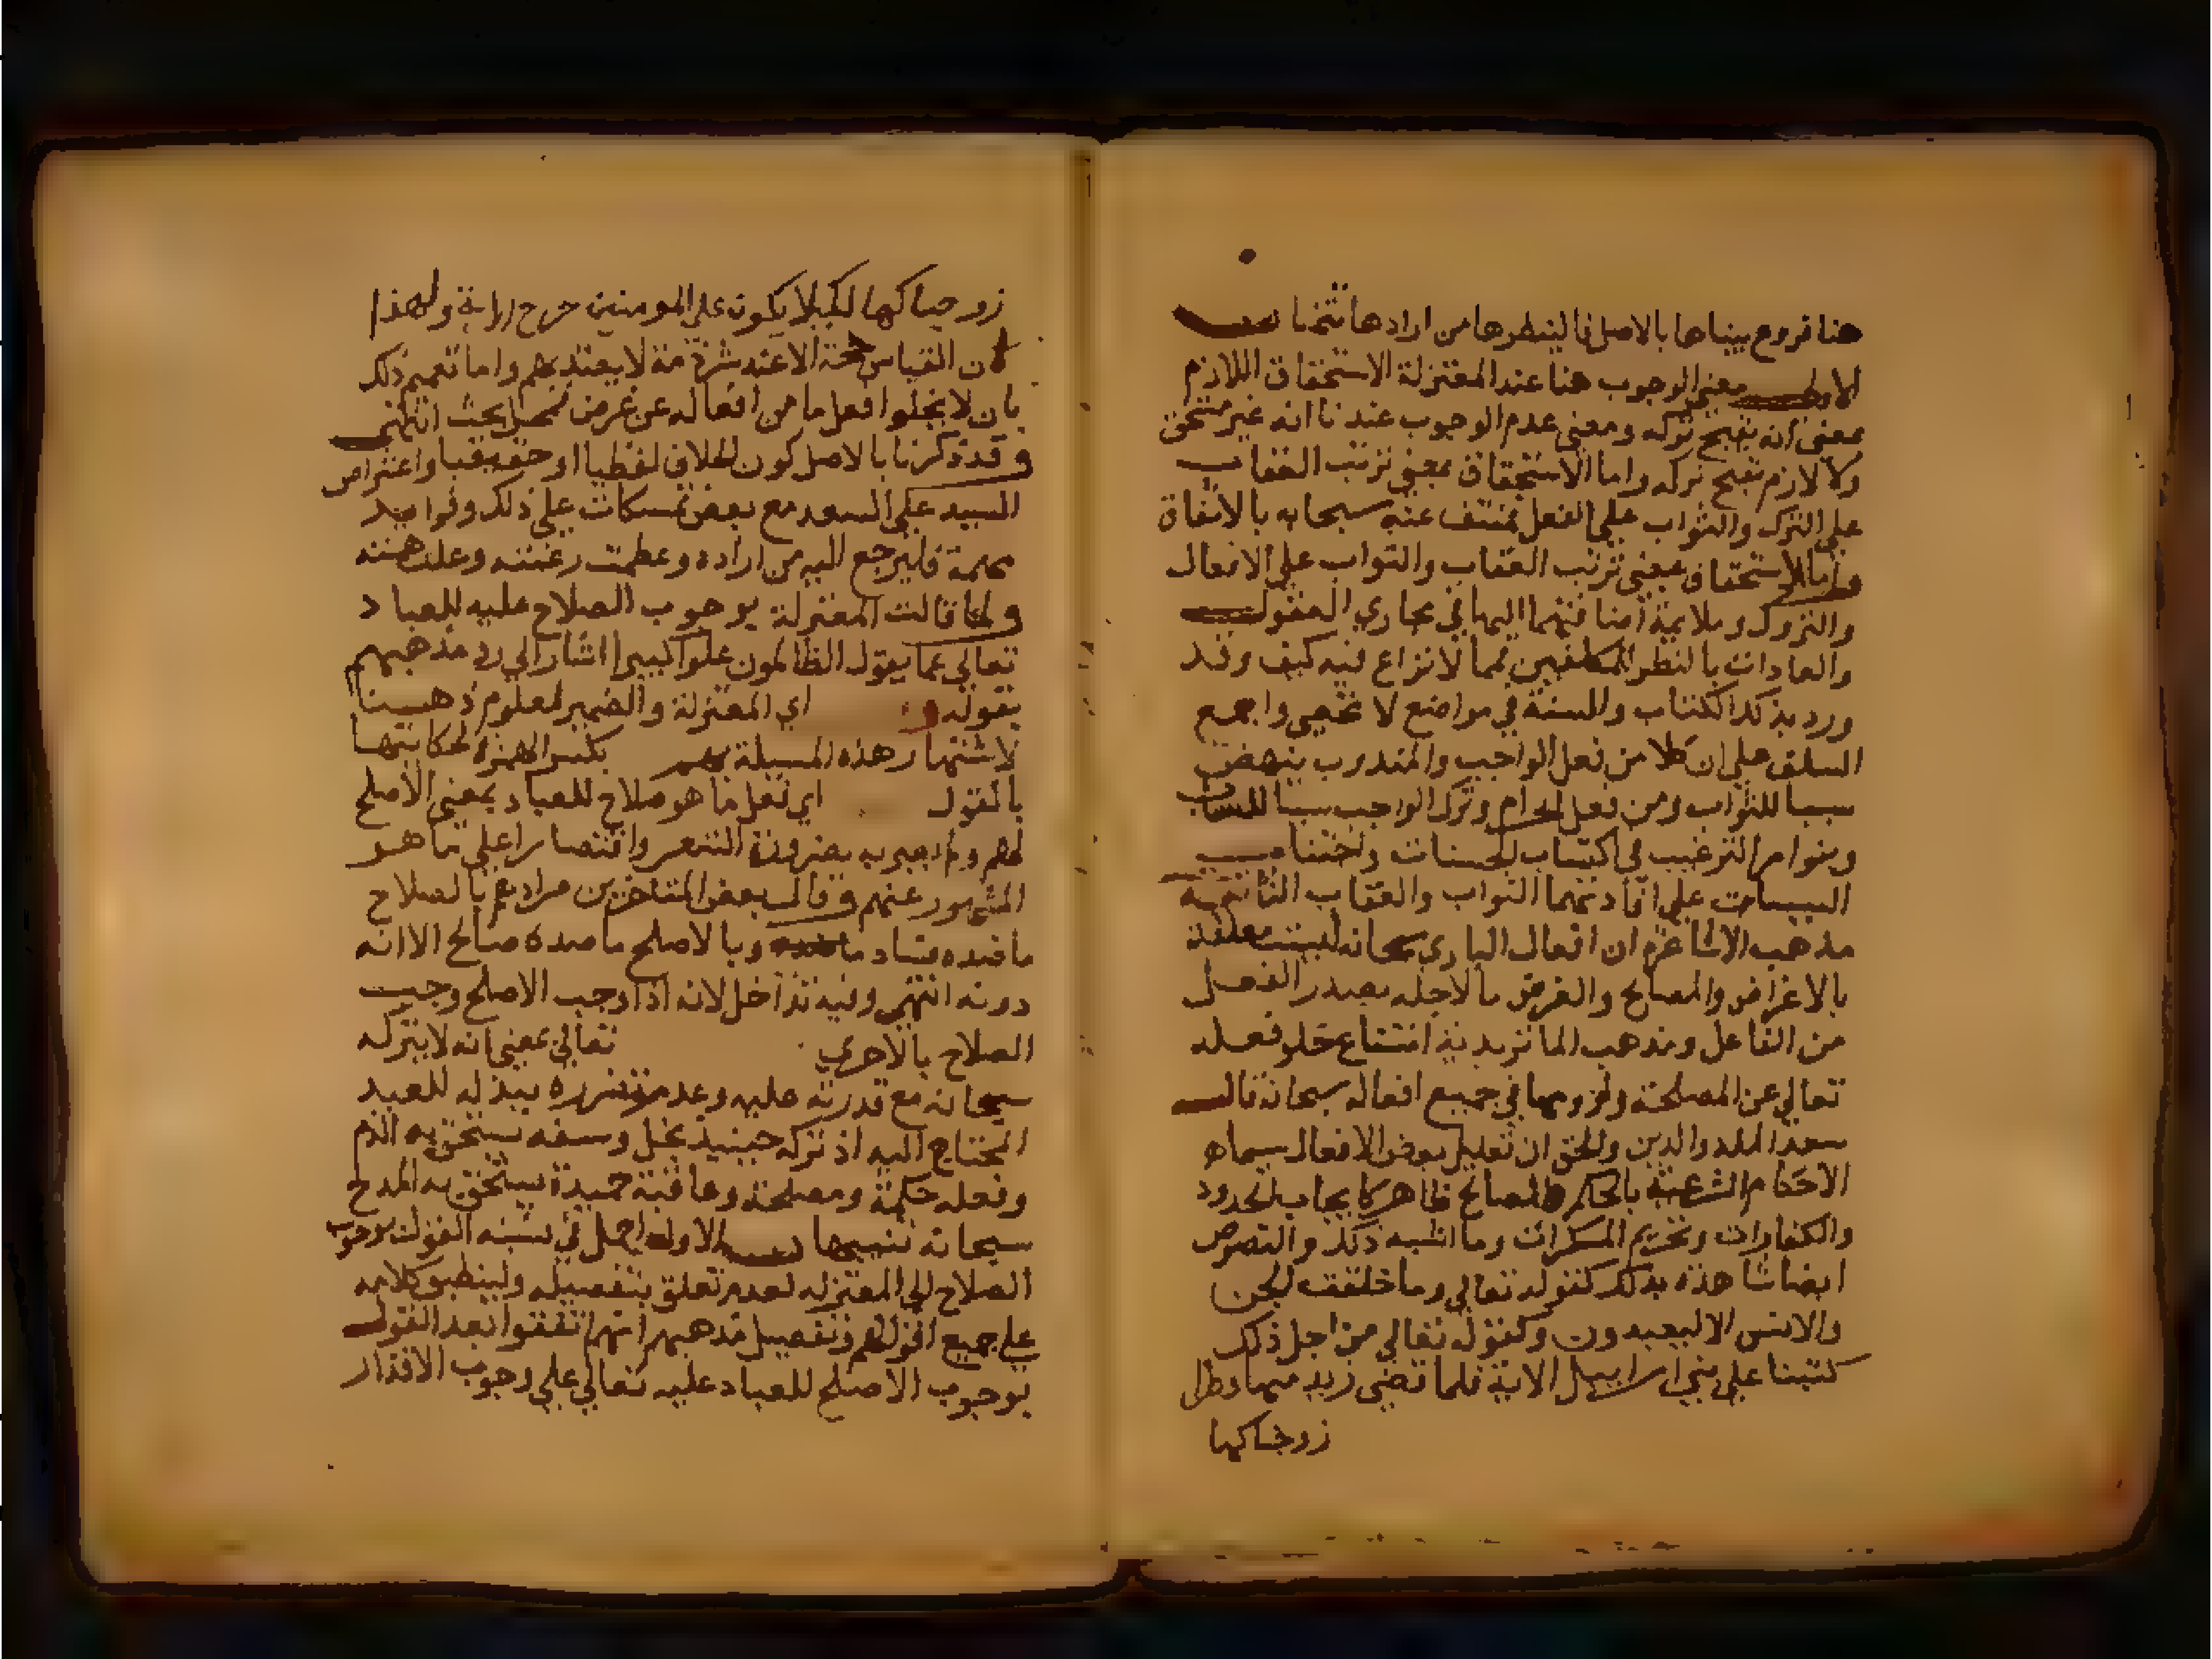 هنا فروع بيناها بالاصل فالينظرها من ارادها
معنى الوجوب هنا عند المعتزلة الاستحقاق اللازم
بمعنى انه يقبح تركه ومعنى عدم الوجوب عندنا انه غير مستحق
ولا لازم يقبح تركه واما الاستحقاق بمعنى ترتب العقاب
على الترك والثواب على الفعل فمنتف عنه سبحانه بالاتفاق
واما الاستحقاق بمعنى ترتب العقاب والثواب على الافعال
والتروك وملايمة اضافتهما اليها في مجاري العقول
والعادات بالنظر للمكلفين فمما لا نزاع فيه كيف وقد
ورد بذلك الكتاب والسنة في مواضع لا تحصى واجمع
السلف على ان كلا من فعل الواجب والمندوب ينهض
سببا للثواب ومن فعل الحرام وترك الواجب سببا للعقاب
وبنوا امر الترغيب في اكتساب الحسنات واجتناب
السيئات على افادتهما الثواب والعقاب الثاني
مذهب الاشاعرة ان افعال الباري سبحانه ليست معللة
بالاغراض والمصالح والغرض ما لاجله يصدر الفعل
من الفاعل ومذهب الماتريدية امتناع خلو فعله
تعالى عن المصلحة ولزومها في جميع افعاله سبحانه قال
سعد الملة والدين والحق ان تعليل بعض الافعال سيما
الاحكام الشرعية بالحكم والمصالح ظاهر كايجاب الحدود
والكفارات وتحريم المسكرات وما اشبه ذلك والنصوص
ايضا شاهدة بذلك كقوله تعالى وما خلقت الجن
والانس الا ليعبدون وكقوله تعالى من اجل ذلك
كتبنا على بني اسراييل الاية فلما قضى زيد منها وطرا
زوجناكها
زوجناكها لكيلا يكون على المومنين حرج الاية ولهذا
كان القياس حجة الا عند شرذمة لا يعتد بهم واما تعميم ذلك
بان لا يخلوا فعل ما من افعاله عن غرض فمحل بحث انتهى
وقد ذكرنا بالاصل كون الخلاف لفظيا او حقيقيا واعتراض
السيد على السعد مع بعض تمسكات على ذلك وفوايد
مهمة فليرجع اليه من اراده وعظمت رغبته وعلت همته
ولما قالت المعتزلة بوجوب الصلاح عليه للعباد
تعالى عما يقول الظالمون علوا كبيرا اشار الى رد مذهبهم
بقوله اي المعتزلة والضمير لمعلوم ذهنيا
لاشتهار هذه المسيلة بهم بكسر الهمزة لحكايتها
بالقول اي فعل ما هو صلاح للعباد بمعنى الاصلح
لهم ولم يعبر به لضرورة الشعر واقتصارا على ما هو
المشهور عنهم وقال بعض المتاخرين مرادهم بالصلاح
ما ضده فساد وبالاصلح ما ضده صالح الا انه
دونه انتهى وفيه تداخل لانه اذا وجب الاصلح وجب
الصلاح بالاحرى تعالى بمعنى انه لا يتركه
سبحانه مع قدرته عليه وعدم تضرره ببذله للعبد
المحتاج اليه اذ تركه حينيذ بخل وسفه يستحق به الذم
وفعله حكمة ومصلحة وعاقبة حميدة يستحق به المدح
سبحانه تنبيهان الاول اجمل في نسبة القول بوجوب
الصلاح الى المعتزلة لعدم تعلق بتفصيله ولينطبق كلامه
على جميع اقوالهم وتفصيل مذهبهم انهم اتفقوا بعد القول
بوجوب الاصلح للعباد عليه تعالى على وجوب الاقدار